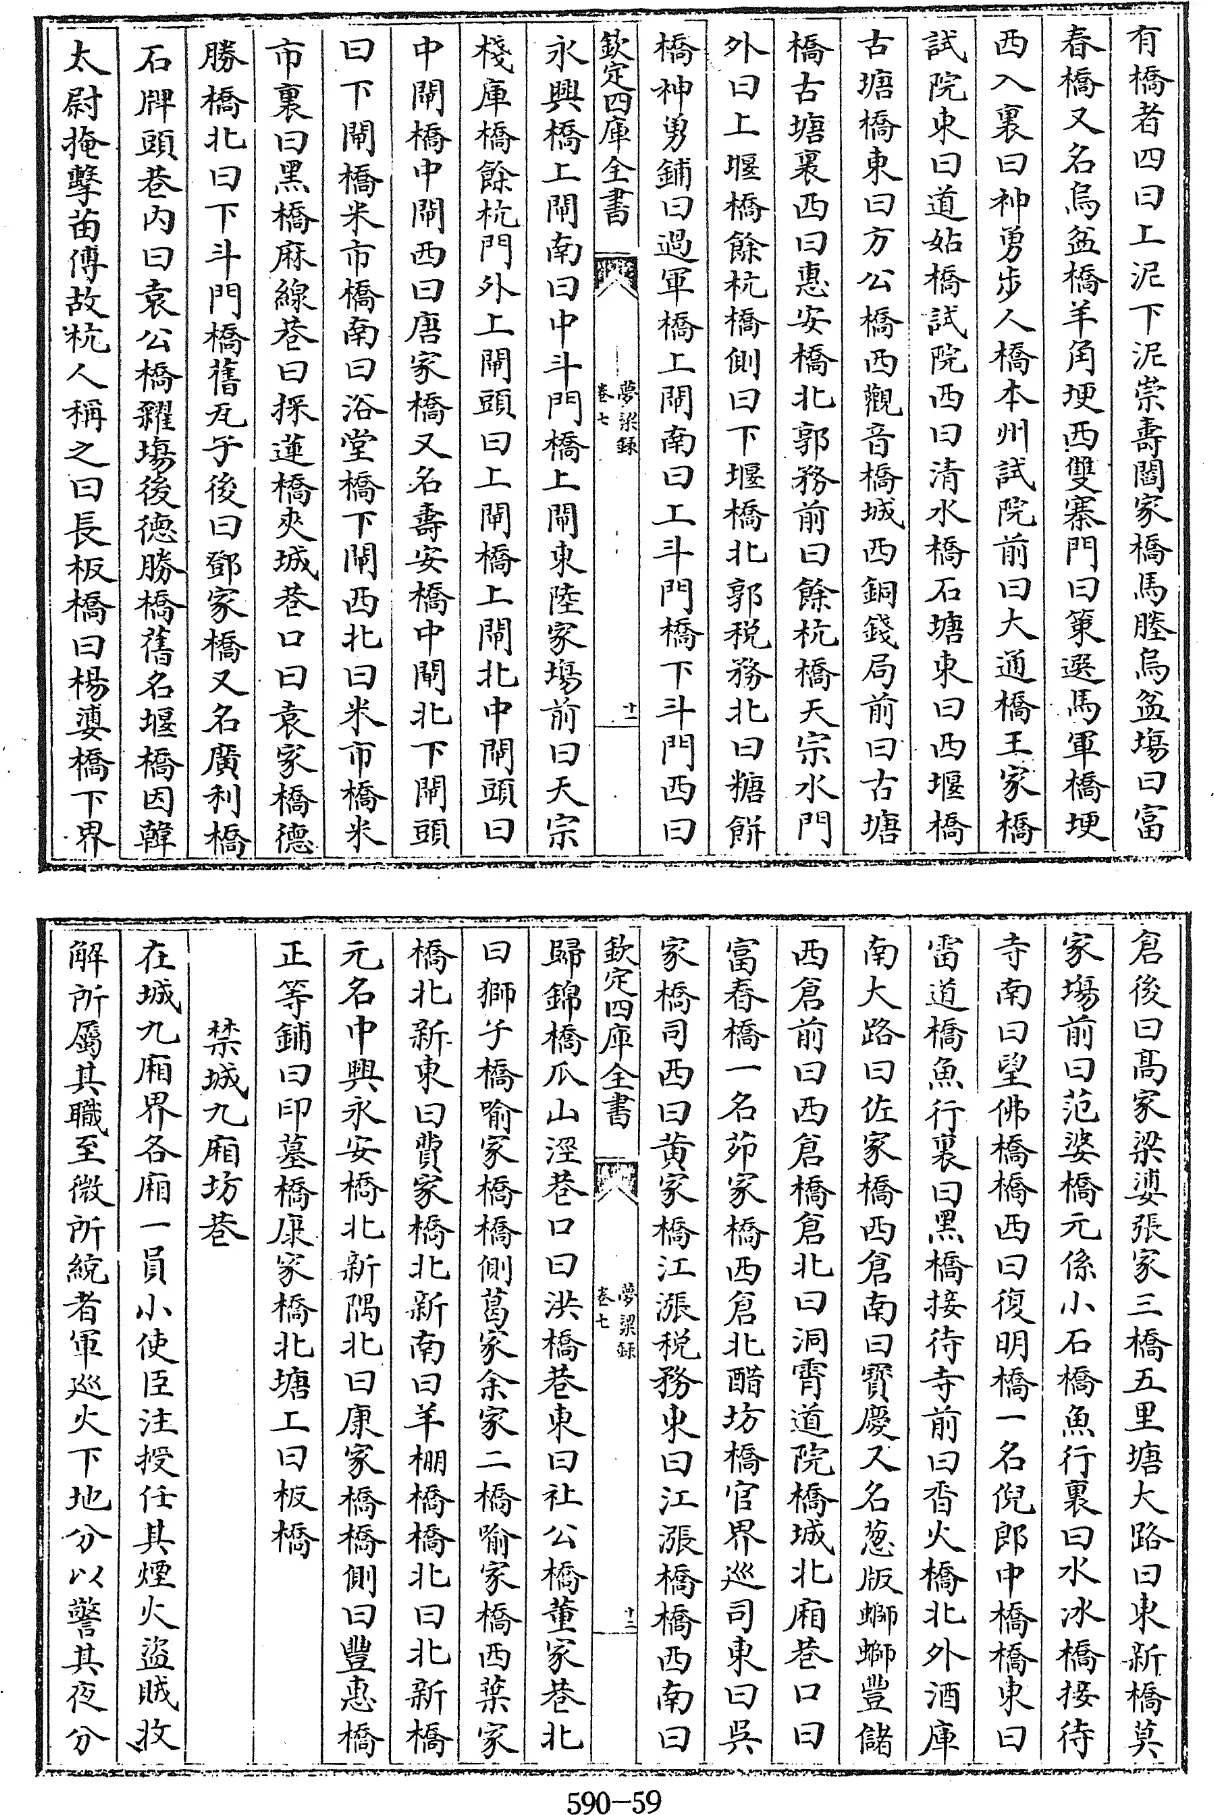 有橋者四曰上泥下泥崇壽閻家橋馬塍烏盆場曰富
春橋又名烏盆橋羊角埂西雙寨門曰策選馬軍橋埂
西入裏曰神勇步人橋本州試院前曰大通橋王家橋
試院東曰道姑橋試院西曰清水橋石塘東曰西堰橋
古塘橋東曰方公橋西觀音橋城西銅錢局前曰古塘
橋古塘裏西曰惠安橋北郭務前曰餘杭橋天宗水門
外曰上堰橋餘杭橋側曰下堰橋北郭稅務北曰糖餅
橋神勇鋪曰過軍橋上閘南曰上斗門橋下斗門西曰
欽定四庫全書 夢梁錄 卷七 十一
永興橋上閘南曰中斗門橋上閘東陸家場前曰天宗
棧庫橋餘杭門外上閘頭曰上閘橋上閘北中閘頭曰
中閘橋中閘西曰唐家橋又名壽安橋中閘北下閘頭
曰下閘橋米市橋南曰浴堂橋下閘西北曰米市橋米
市裏曰黑橋麻線巷曰採蓮橋夾城巷口曰袁家橋德
勝橋北曰下斗門橋舊瓦子後曰鄧家橋又名廣利橋
石牌頭巷內曰袁公橋糴場後德勝橋舊名堰橋因韓
太尉掩擊苗傅故杭人稱之曰長板橋曰楊婆橋下界
倉後曰髙家梁婆張家三橋五里塘大路曰東新橋莫
家場前曰范婆橋元係小石橋魚行裏曰水冰橋接待
寺南曰望佛橋橋西曰復明橋一名倪郎中橋橋東曰
雷道橋魚行裏曰黑橋接待寺前曰香火橋北外酒庫
南大路曰佐家橋西倉南曰寳慶又名葱版螄螄豐儲
西倉前曰西倉橋倉北曰洞霄道院橋城北廂巷口曰
富春橋一名茆家橋西倉北醋坊橋官界巡司東曰吳
家橋司西曰黄家橋江漲稅務東曰江漲橋橋西南曰
欽定四庫全書 夢梁錄 卷七 十二
歸錦橋瓜山涇巷口曰洪橋巷東曰社公橋董家巷北
曰獅子橋喻家橋橋側葛家余家二橋喻家橋西葉家
橋北新東曰費家橋北新南曰羊棚橋橋北曰北新橋
元名中興永安橋北新隅北曰康家橋橋側曰豐惠橋
正等鋪曰印墓橋康家橋北塘工曰板橋
禁城九廂坊巷
在城九廂界各廂一員小使臣注授任其煙火盜賊收
解所屬其職至微所統者軍巡火下地分以警其夜分
590-59